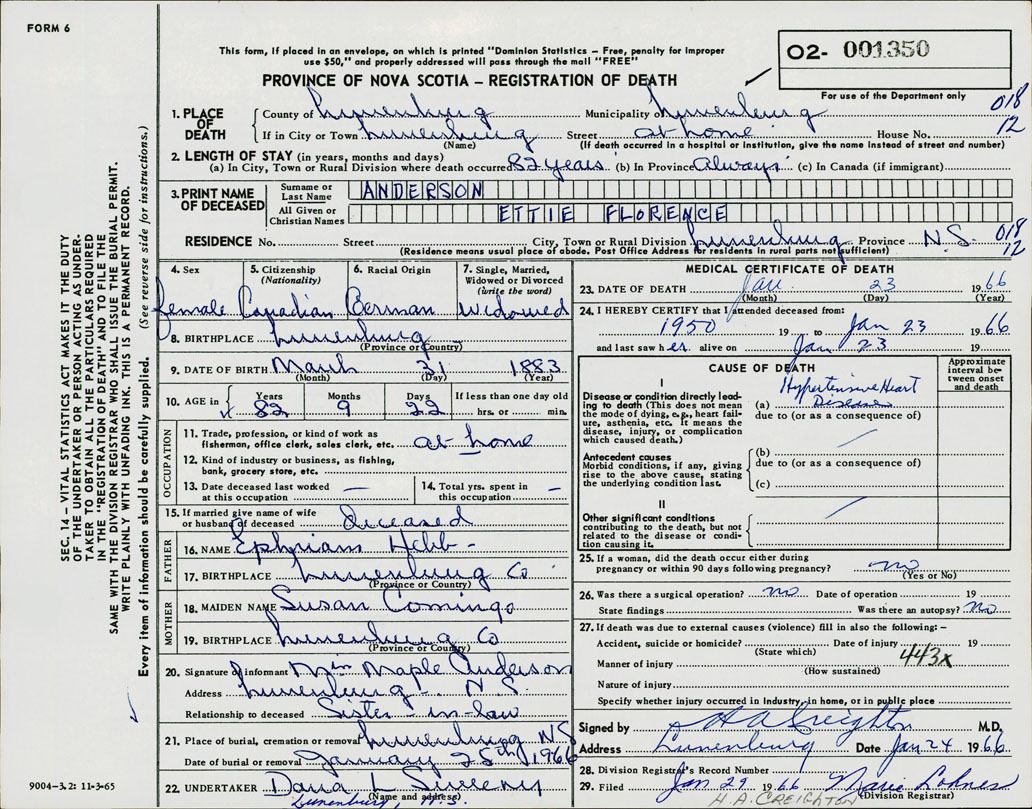 FORM 6
This form, if placed in an envelope, on which is printed "Dominion Statistics – Free, penalty for improper
use $50," and properly addressed will pass through the mail "FREE"
PROVINCE OF NOVA SCOTIA – REGISTRATION OF DEATH
02- 001350
For use of the Department only
018
12
1. PLACE OF DEATH
County of Lunenburg Municipality of Lunenburg
If in City or Town Lunenburg Street at home House No.
(Name) (If death occurred in a hospital or institution, give the name instead of street and number)
2. LENGTH OF STAY (in years, months and days)
(a) In City, Town or Rural Division where death occurred 82 years (b) In Province Always (c) In Canada (if immigrant)
3. PRINT NAME OF DECEASED
Surname or Last Name ANDERSON
All Given or Christian Names ETTIE FLORENCE
RESIDENCE No. Street City, Town or Rural Division Lunenburg Province N.S. 018 12
(Residence means usual place of abode. Post Office Address for residents in rural parts not sufficient)
4. Sex 5. Citizenship (Nationality) 6. Racial Origin 7. Single, Married, Widowed or Divorced (write the word)
Female Canadian German Widowed
8. BIRTHPLACE Lunenburg
(Province or Country)
9. DATE OF BIRTH March 31 1883
(Month) (Day) (Year)
10. AGE in Years Months Days If less than one day old
82 9 22 hrs. or min.
OCCUPATION
11. Trade, profession, or kind of work as fisherman, office clerk, sales clerk, etc. at home
12. Kind of industry or business, as fishing, bank, grocery store, etc.
13. Date deceased last worked at this occupation —
14. Total yrs. spent in this occupation —
15. If married give name of wife or husband of deceased deceased
FATHER
16. NAME Ephriam Hebb -
17. BIRTHPLACE Lunenburg Co
(Province or Country)
MOTHER
18. MAIDEN NAME Susan Comingo
19. BIRTHPLACE Lunenburg Co
(Province or Country)
20. Signature of informant Maple Anderson
Address Lunenburg - N.S.
Relationship to deceased Sister-in-law
21. Place of burial, cremation or removal Lunenburg NS
Date of burial or removal January 25th 1966
22. UNDERTAKER Dana L Sweeny
(Name and address)
Lunenburg, N.S.
MEDICAL CERTIFICATE OF DEATH
23. DATE OF DEATH Jan. 23 1966
(Month) (Day) (Year)
24. I HEREBY CERTIFY that I attended deceased from:
1950 19 to Jan 23 1966
and last saw her alive on Jan 23 19
CAUSE OF DEATH
Approximate interval between onset and death
I
Disease or condition directly leading to death (This does not mean the mode of dying, e.g., heart failure, asthenia, etc. It means the disease, injury, or complication which caused death.)
(a) Hypertensive Heart Disease
due to (or as a consequence of)
Antecedent causes
Morbid conditions, if any, giving rise to the above cause, stating the underlying condition last.
(b)
due to (or as a consequence of)
(c)
II
Other significant conditions
contributing to the death, but not related to the disease or condition causing it.
25. If a woman, did the death occur either during
pregnancy or within 90 days following pregnancy? no
(Yes or No)
26. Was there a surgical operation? no Date of operation 19
State findings Was there an autopsy? No
27. If death was due to external causes (violence) fill in also the following: –
Accident, suicide or homicide? Date of injury 19
(State which)
443x
Manner of injury
(How sustained)
Nature of injury
Specify whether injury occurred in industry, in home, or in public place
Signed by H A Creighton M.D.
Address Lunenburg Date Jan 24 1966
28. Division Registrar's Record Number
29. Filed Jan 27 1966 Marie Lohnes
H. A. CREIGHTON (Division Registrar)
SEC. 14 – VITAL STATISTICS ACT MAKES IT THE DUTY
OF THE UNDERTAKER OR PERSON ACTING AS UNDER-
TAKER TO OBTAIN ALL THE PARTICULARS REQUIRED
IN THE "REGISTRATION OF DEATH" AND TO FILE THE
SAME WITH THE DIVISION REGISTRAR WHO SHALL ISSUE THE BURIAL PERMIT.
WRITE PLAINLY WITH UNFADING INK. THIS IS A PERMANENT RECORD.
Every item of information should be carefully supplied. (See reverse side for instructions.)
9004-3.2: 11-3-65